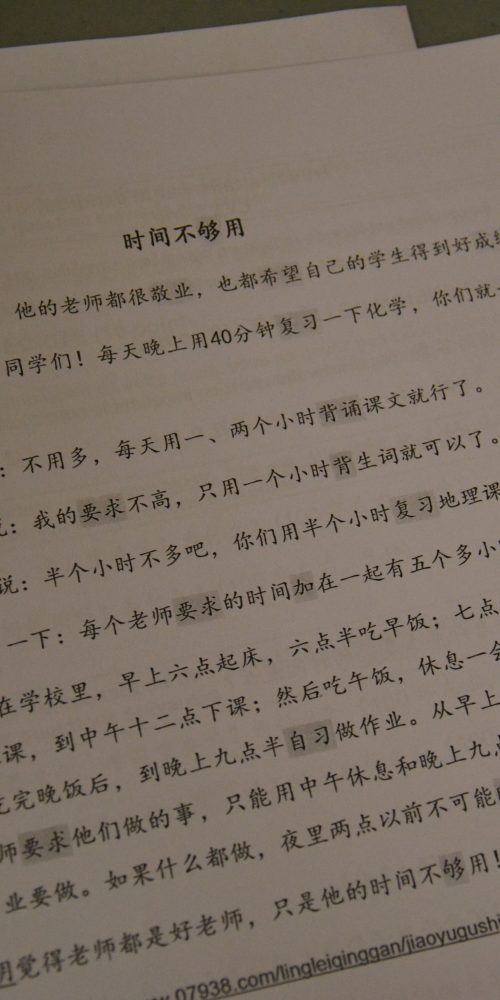 时间不够用
他的老师都很敬业，也都希望自己的学生得到好成
同学们！每天晚上用40分钟复习一下化学，你们就
：不用多，每天用一、两个小时背诵课文就行了。
：我的要求不高，只用一个小时背生词就可以了。
说：半个小时不多吧，你们用半个小时复习地理课
一下：每个老师要求的时间加在一起有五个多小
在学校里，早上六点起床，六点半吃早饭；七点
课，到中午十二点下课；然后吃午饭，休息一会
吃完晚饭后，到晚上九点半自习做作业。从早上
师要求他们做的事，只能用中午休息和晚上九点
业要做。如果什么都做，夜里两点以前不可能
明觉得老师都是好老师，只是他的时间不够用！
.07938.com/lingleiqinggan/jiaoyugushi